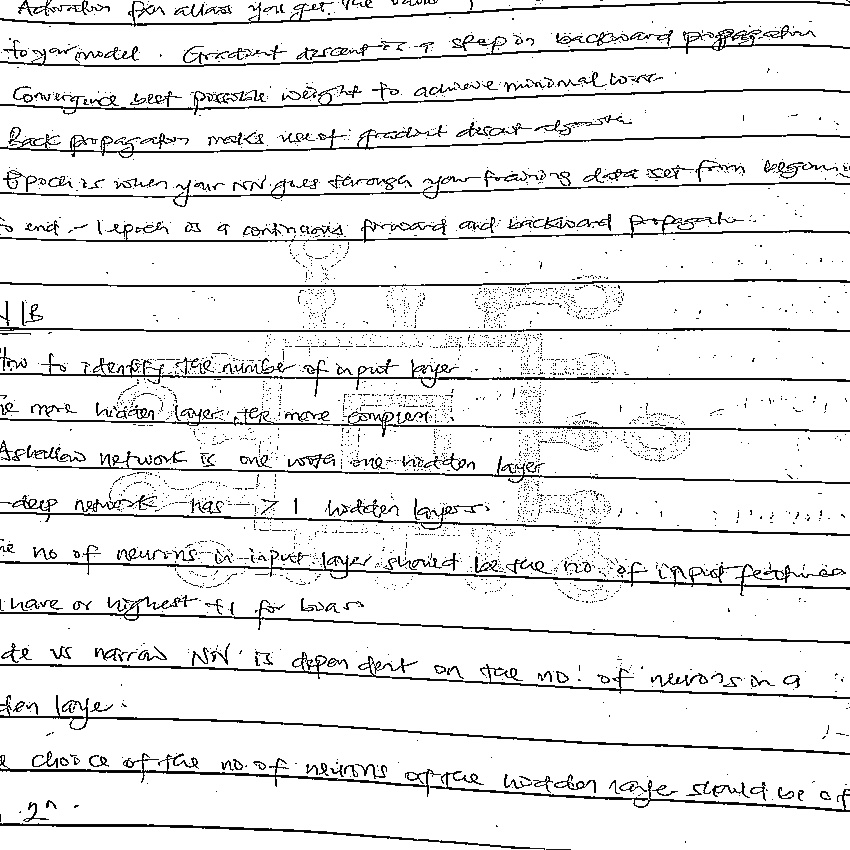 Activation fxn allows you get the
to your model. Gradient descent is a step in backward propagation
Convergence best possible weight to achieve minimal loss
Back propagation makes use of gradient descent algorithm
Epoch is when your NN goes through your training data set from beginning
to end - 1 epoch is a continuous forward and backward propagation.
N|B
How to identify the number of input layer
he more hidden layer, the more complex.
A shallow network is one with one hidden layer
deep network has > 1 hidden layers.
he no of neurons in input layer should be the no. of input features
have or highest +1 for bias
de vs narrow NN is dependent on the no. of neurons in a
den layer.
e choice of the no. of neurons of the hidden layer should be of
2ⁿ.